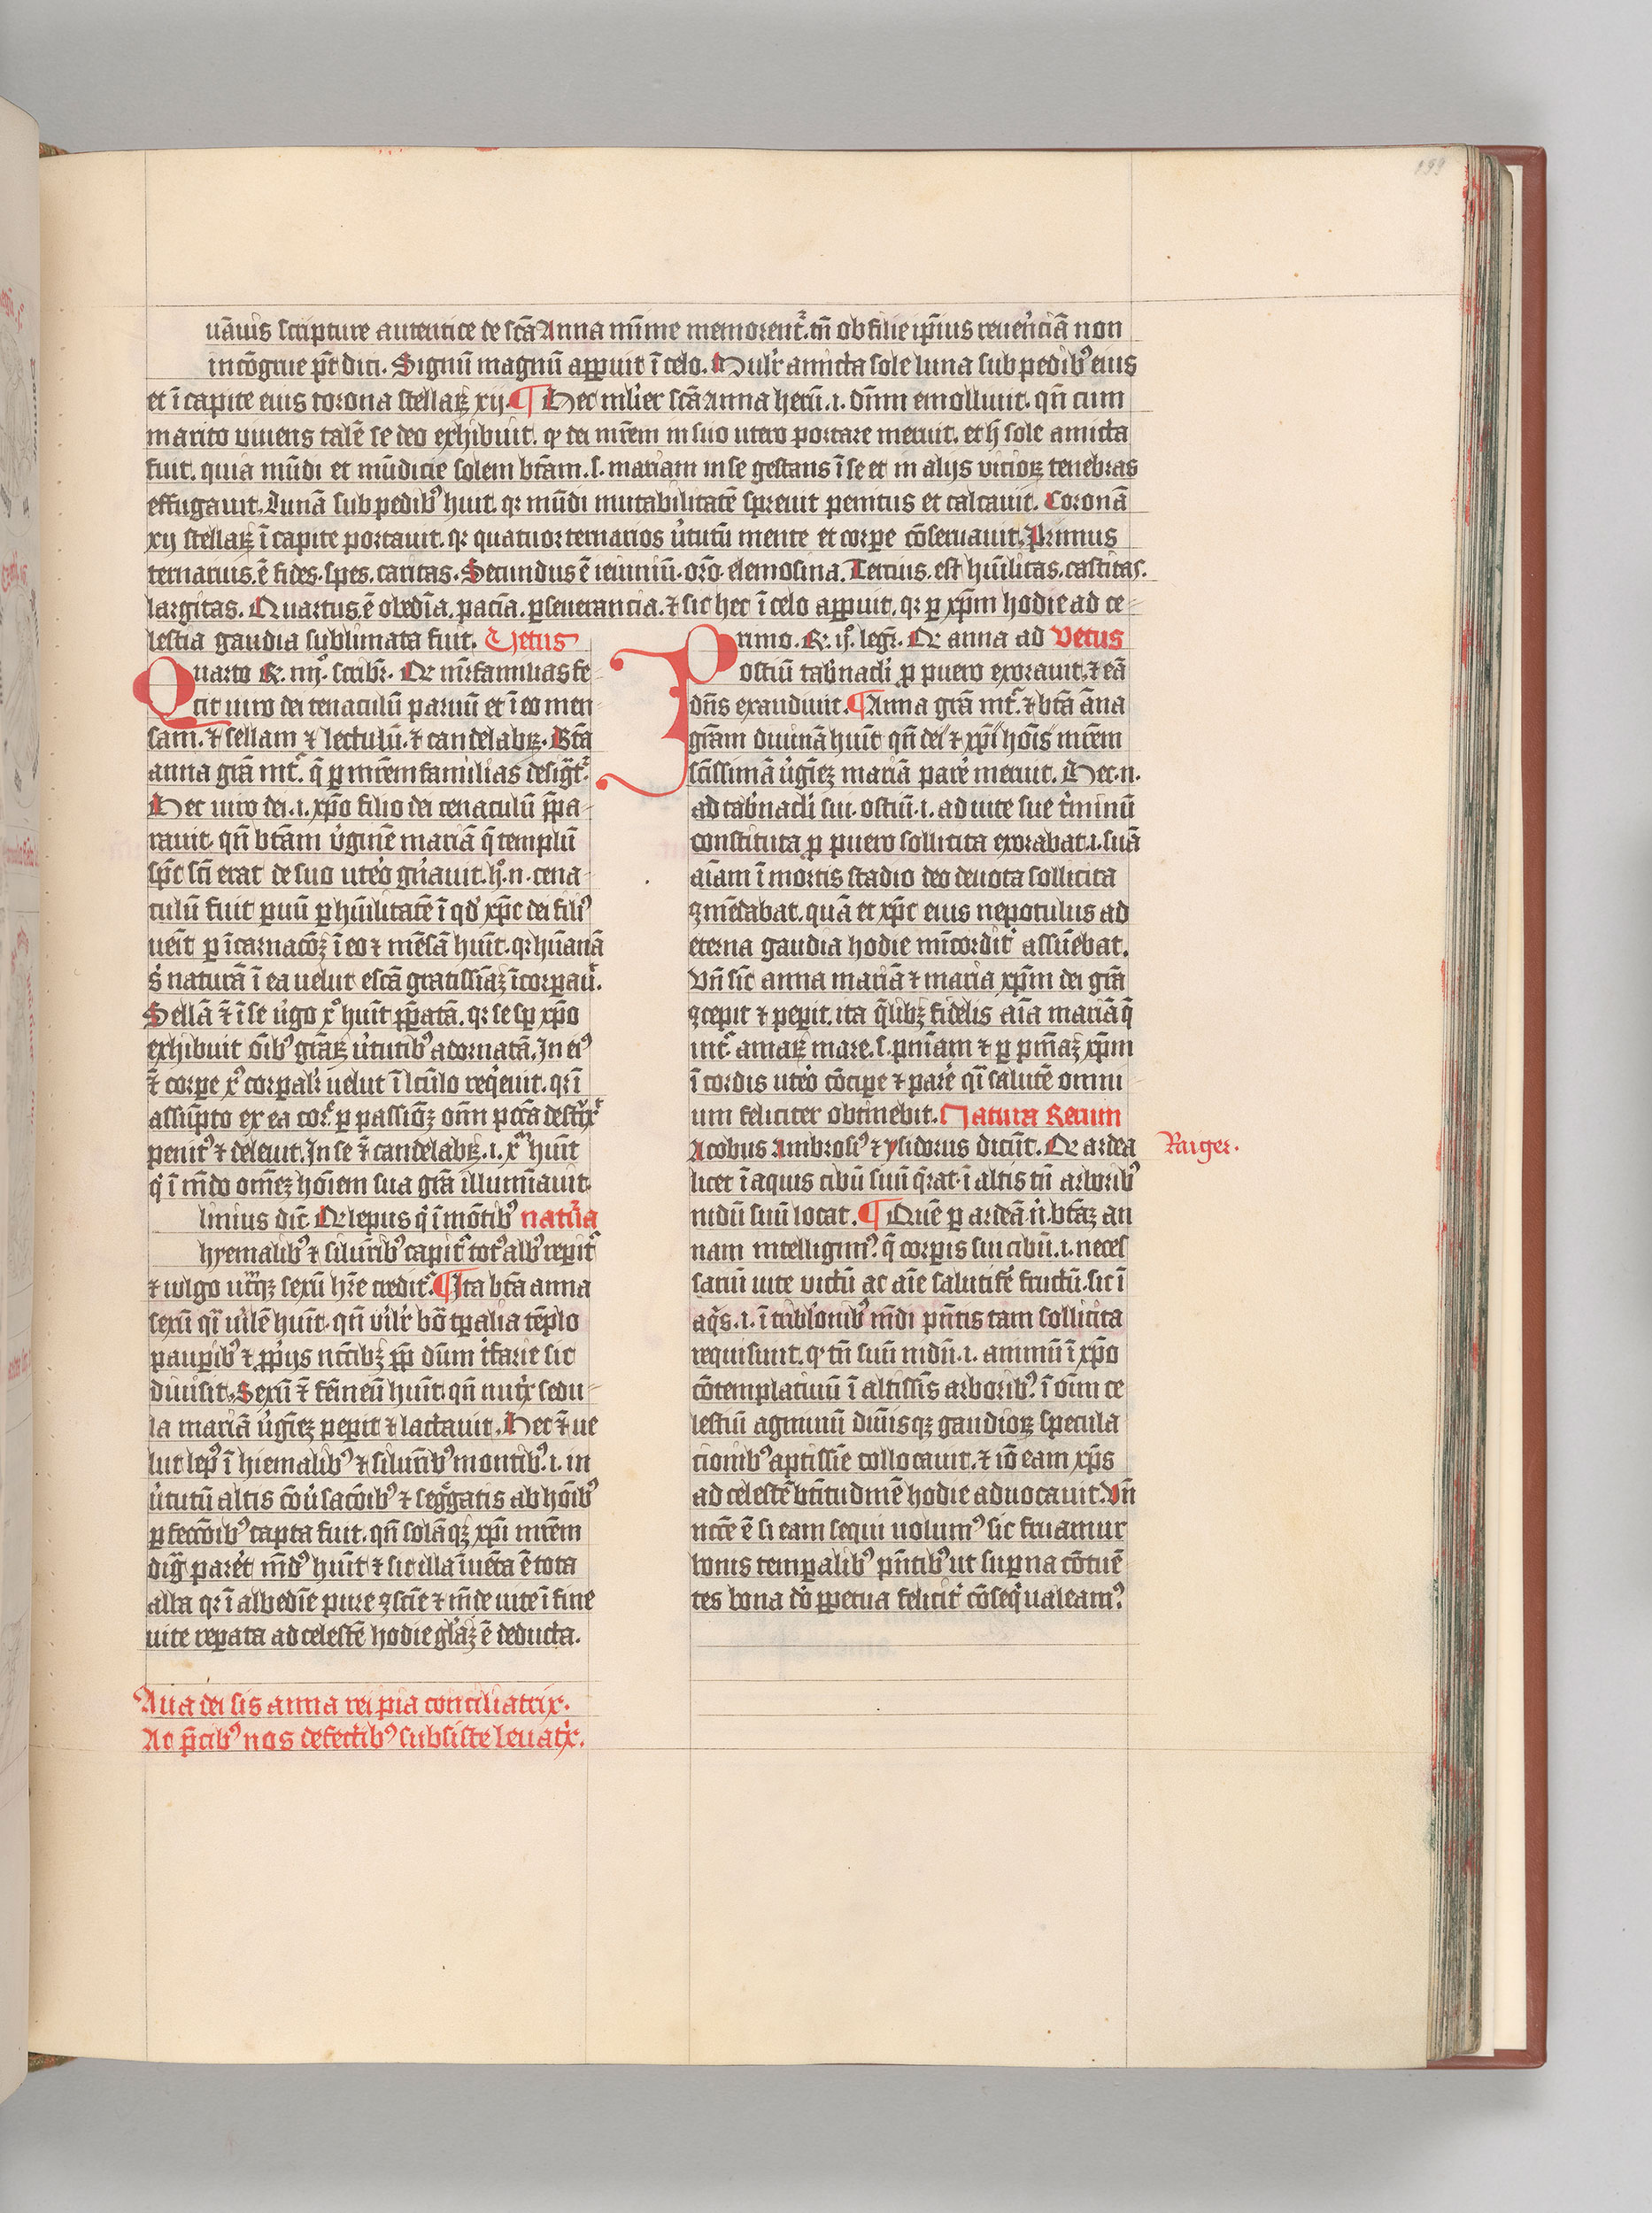 199
uāuis scripture autentice de scā Anna mīme memorent͛. tn̄ ob filie ip̄ius reuer̄ciā non
incōgrue pt̄ dici. Signū magnū apparuit ī celo. Mulr̄ amicta sole luna sub pedib⁹ eius
et ī capite eius corona stellaꝝ xij. ¶ Hec mlīer scā Anna herū .i. dn̄m emolliuit. qn̄ cum
marito viuens talē se deo exhibuit. qꝫ dei mrēm in suo utero portare meruit. et h̄ sole amicta
fuit. quia mūdi et mūdicie solem btām .s. mariam in se gestans ī se et in alijs vicioꝝ tenebras
effugauit. Lunā sub pedib⁹ huit. qr mūdi mutabilitatē spreuit penitus et calcauit. Coronā
xij stellaꝝ ī capite portauit. qr quatuor ternarios ūtutū mente et corꝑe cōseruauit. Primus
ternarius. ē fides. spes. caritas. Secundus ē ieiuniū. orō. elemosina. Tercius. est hūilitas. castitas.
largitas. Quartus. ē obediā. paciā. ꝑseuerancia. ⁊ sic hec ī celo apparuit. qr ꝑ xp̄m hodie ad ce-
lestia gaudia sublimata fuit. Vetus
Quarto R. iiij. scribr̄. Qꝛ mr̄familias fe-
cit uiro dei cenaculū paruū et ī eo men-
sam. ⁊ sellam ⁊ lectulū. ⁊ candelabꝝ. Btā
anna grā mt͛. q̄ ꝑ mrēmfamilias desigt͛.
Hec uiro dei .i. xp̄o filio dei cenaculū p̄pa-
rauit. qn̄ btām v̄ginē mariā q̄ templū
sp̄c sc̄i erat de suo utēo gn̄auit. h̊. n. cena-
culū fuit ꝑuū ꝑ hūilitatē ī qd̄ xp̄c dei fili⁹
uēit ꝑ īcarnacōꝫ ī eo ⁊ mēsā huīt. qr hūanā
s̄ naturā ī ea uelut escā gratissīaꝫ īcorꝑau͛.
Sellā ⁊̄ ī se v̄go x̊ huīt p̄ꝑatā. qr se sp̄ xp̄o
exhibuit oīb⁹ grāꝝ ūtutib⁹ adornatā. In ei⁹
⁊̄ corꝑe x̊ corꝑalr̄ uelut ī lc̄ulo req̄euit. qr ī
assūpto ex ea cor͛. ꝑ passiōꝫ om̄ pccā destrͥx͛
penit⁹ ⁊ deleuit. In se ⁊̄ candelabꝝ .i. xᵐ huīt
q̄ ī mūdo om̄eꝫ hoīem sua grā illumīauit
linius dic̄t. Qꝛ lepus q̄ ī mōtib⁹ natur̄a
hyemalib⁹ ⁊ siluīrib⁹ capit͛ tot⁹ alb⁹ reꝑit͛
⁊ uulgo utrͫqꝫ sexū hr̄e credit͛. ¶ Ita btā anna
sexū qī uīlē huīt. qn̄ vīlr̄ bō tꝑalia tēplo
pauꝑib⁹ ⁊ p̄pijs nccīibꝫ p̄p̄ dn̄m t̄farie sic
diuisit. Sexū ⁊̄ fēineū huīt. qn̄ nutrͥx sedu-
la mariā v̄gīeꝫ peꝑit ⁊ lactauit. Hec ⁊̄ ue
lut lep⁹ ī hiemalib⁹ ⁊ siluīrib⁹ montib⁹ .i. in
ūtutū altis cōūsacōib⁹ ⁊ seggatis ab hoīb⁹
ꝑfeccōib⁹ capta fuit. qn̄ solāqꝫ xp̄i mrēm
dig parēt mūd⁹ huīt ⁊ sic illa īuēta ē tota
alba qr ī albedīe pure ꝯscīe ⁊ mūde uite ī fine
uite reꝑata ad celestē hodie glāꝫ ē deducta.
Aua dei sis anna rei pia conciliatrix.
Ac p̄cib⁹ nos defectib⁹ subsiste leuatrͥx.
Primo. R. iͦ. legr̄. Qꝛ anna ad Vetus
ostiū tab̄nacl̄i ꝑ puero exorauit. ⁊ eā
dn̄s exaudiuit. ¶ Anna grā mt͛. ⁊ btā āna
grām diuinā huīt qn̄ dei ⁊ xp̄i hoīs mrēm
sc̄issimā v̄gīeꝫ mariā parē meruit. Hec. n.
ad tab̄nacl̄i sui. ostiū .i. ad uite sue t̄minū
constituta ꝑ puero sollicita exorabat .i. suā
aīam ī mortis stadio deo deuota sollicita
ꝯmēdabat. quā et xp̄c eius nepotulus ad
eterna gaudia hodie mīcordit͛ assūebat.
Vn̄ sīc anna mariā ⁊ maria xp̄m dei grā
ꝯcepit ⁊ peꝑit. ita q̄libꝫ fidelis aīa mariā q̄
int͛ amaꝝ mare .s. pnīam ⁊ ꝑ pnīaꝫ xp̄m
ī cordis utēo cōcipe ⁊ parē qī salutē omni
um feliciter obtinebit. Natura Rerum
Jacobus Ambrosi⁹ ⁊ ysidorus dicūt. Qꝛ ardea
licet ī aquis cibū suū q̄rat. ī altis tn̄ arborib⁹
nidū suū locat. ¶ Quē ꝑ ardeā n̄. btāꝫ an
nam intelligim⁹. q̄ corꝑis sui cibū .i. neces
sariū uite victū ac aīe salutifē fructū. sic ī
aq̄s .i. ī tribl̄onib⁹ mūdi pn̄tis tam sollicita
requisiuit. qꝫ tn̄ suū nidū .i. animū ī xp̄o
cōtemplatiuū ī altissīs arborib⁹. ī oīm ce
lestiū agminū diuīsqꝫ gaudioꝝ specula
cionib⁹ aptissīe collocauit. ⁊ iō eam xp̄s
ad celestē btītudinē hodie aduocauit. Vn̄
nccē ē si eam sequi uolum⁹ sic fruamur
bonis temꝑalib⁹ pn̄tib⁹ ut suꝑna cōtuē
tes bona dō p̄petua felicit͛ cōseq̄ ualeam⁹.
Raiger.